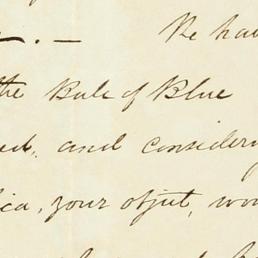 We hav
the Bale of Blue
and consider
ica, your objut, wou